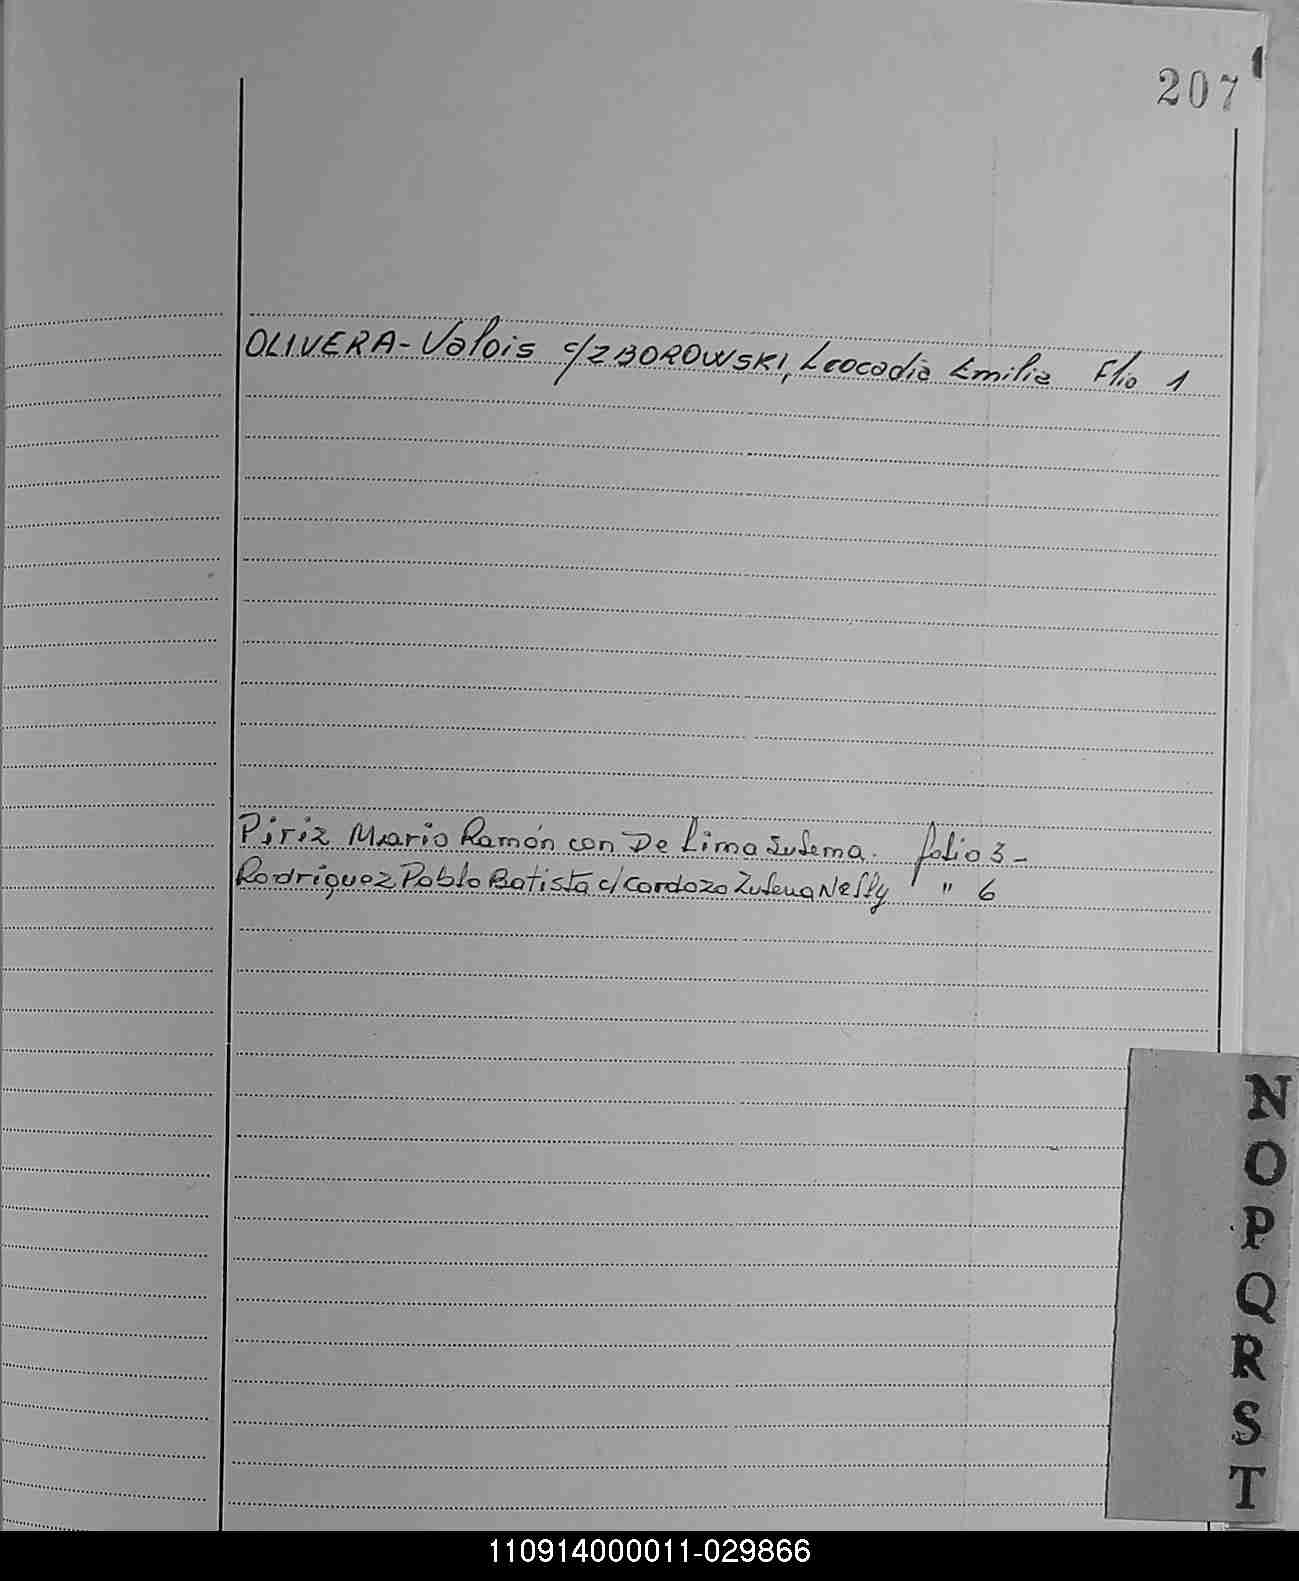 207
OLIVERA-Valois c/ZBOROWSKI, Leocadia Emilia Flio 1
Piriz Mario Ramón con De Lima Zulema. folio 3-
Rodríguez Pablo Batista c/Cardozo Zulena Nelly " 6
N
O
P
Q
R
S
T
110914000011-029866